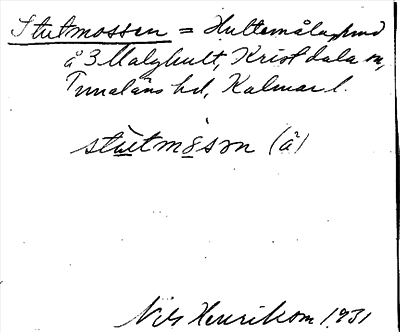 Stutmossen = Hultemåla grund
å 3 Malghult, Kristdala sn,
Tunaläns hd, Kalmar l.
stutmåsən (å)
Nils Henrikson 1931